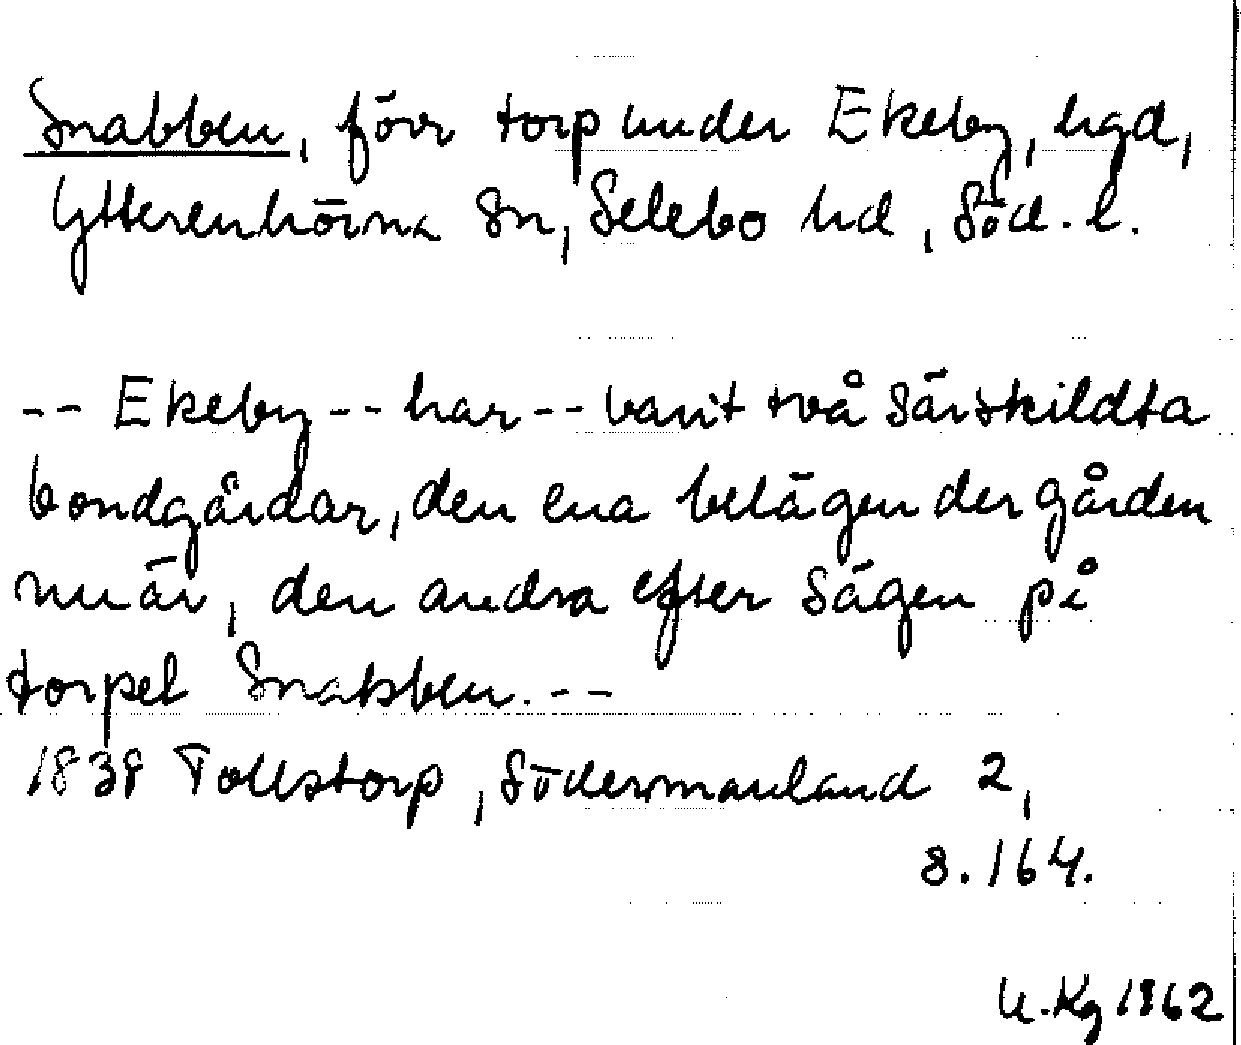 Snabben, förr torp under Ekeby, hgd,
Ytterenhörna sn, Selebo hd, Söd. l.
-- Ekeby -- har -- varit två särskildta
bondgårdar, den ena belägen der gården
nu är, den andra efter sägen på
torpet Snabben. --
1838 Tollstorp, Södermanland 2,
s. 164.
U. Kg 1962